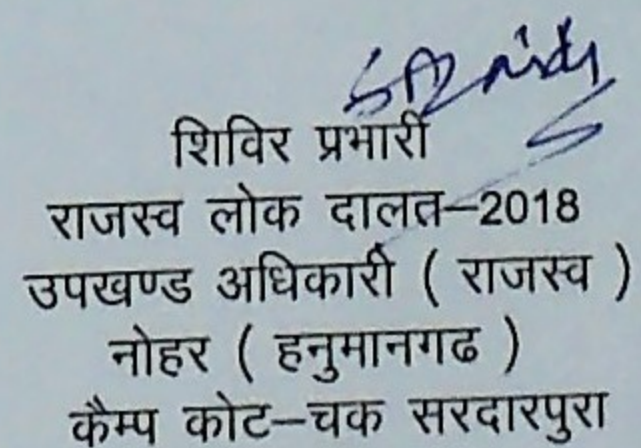 शिविर प्रभारी
राजस्व लोक दालत–2018
उपखण्ड अधिकारी ( राजस्व )
नोहर ( हनुमानगढ )
कैम्प कोट–चक सरदारपुरा